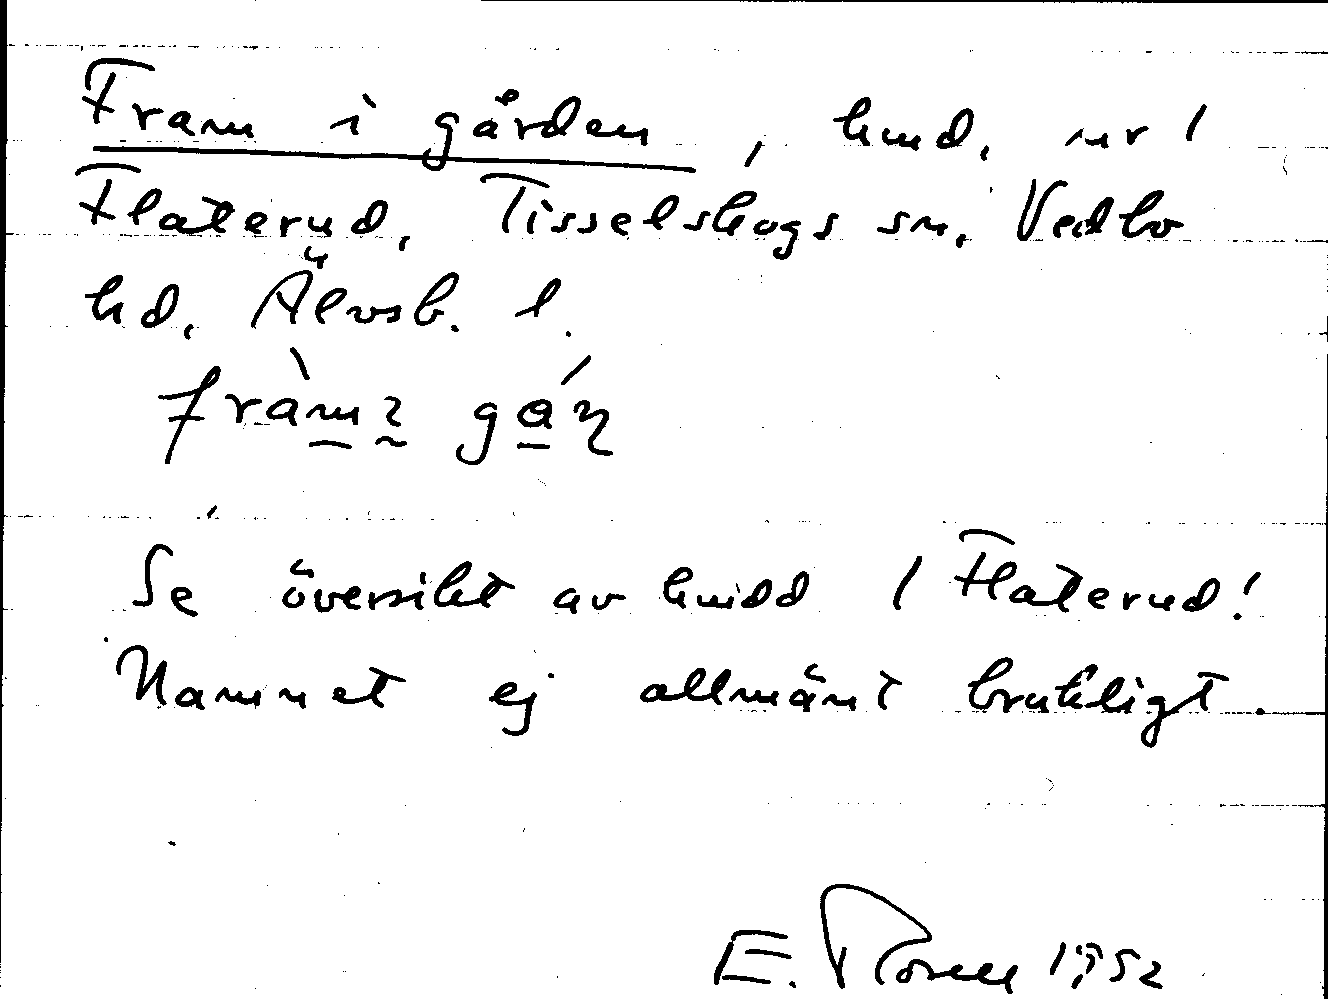 Fram i gården, hmd, nr 1
Flaterud, Tisselskogs sn, Vedbo
hd, Älvsb. l.
Se översikt av hmdd / Flaterud!
Namnet ej allmänt brukligt.
E. 1952